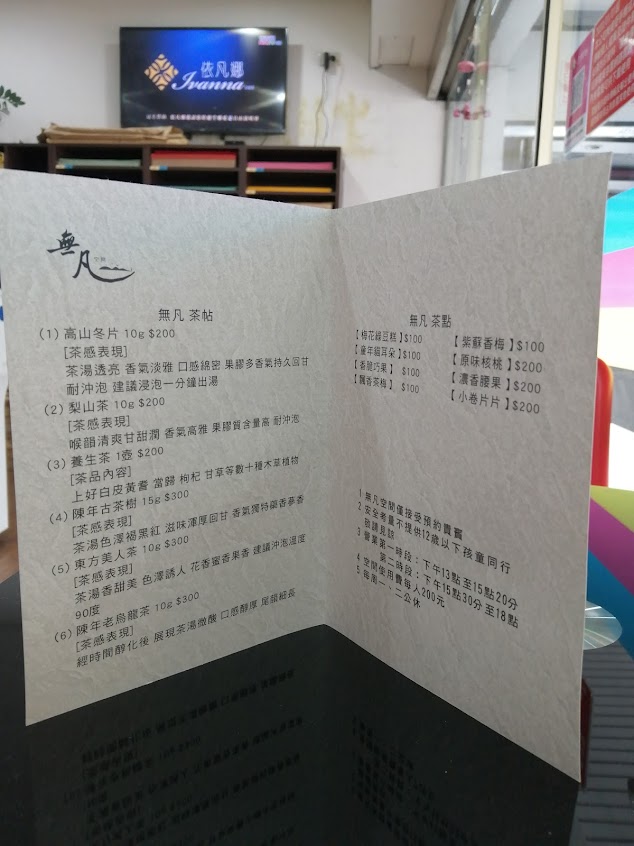 依凡娜
Ivanna
無凡
無凡 茶帖
(1) 高山冬片 10g $200
[茶感表現]
茶湯透亮 香氣淡雅 口感綿密 果膠多香氣持久回甘
耐沖泡 建議浸泡一分鐘出湯
(2) 梨山茶 10g $200
[茶感表現]
喉韻清爽甘甜潤 香氣高雅 果膠質含量高 耐沖泡
(3) 養生茶 1壺 $200
[茶品內容]
上好白皮黃耆 當歸 枸杞 甘草等數十種木草植物
(4) 陳年古茶樹 15g $300
[茶感表現]
茶湯色澤褐黑紅 滋味渾厚回甘 香氣獨特藥香蔘香
(5) 東方美人茶 10g $300
[茶感表現]
茶湯香甜美 色澤誘人 花香蜜香果香 建議沖泡溫度
90度
(6) 陳年老烏龍茶 10g $300
[茶感表現]
經時間醇化後 展現茶湯微酸 口感醇厚 尾韻細長
無凡 茶點
【梅花綠豆糕】$100
【童年貓耳朵】$100
【香脆巧果】 $100
【飄香茶梅】 $100
【紫蘇香梅】$100
【原味核桃】$200
【濃香腰果】$200
【小卷片片】$200
1 無凡空間僅接受預約貴賓
2 安全考量不提供12歲以下孩童同行
敬請見諒
3 營業第一時段：下午13點至15點20分
第二時段：下午15點30分至18點
4 空間使用費每人200元
5 每周一、二公休